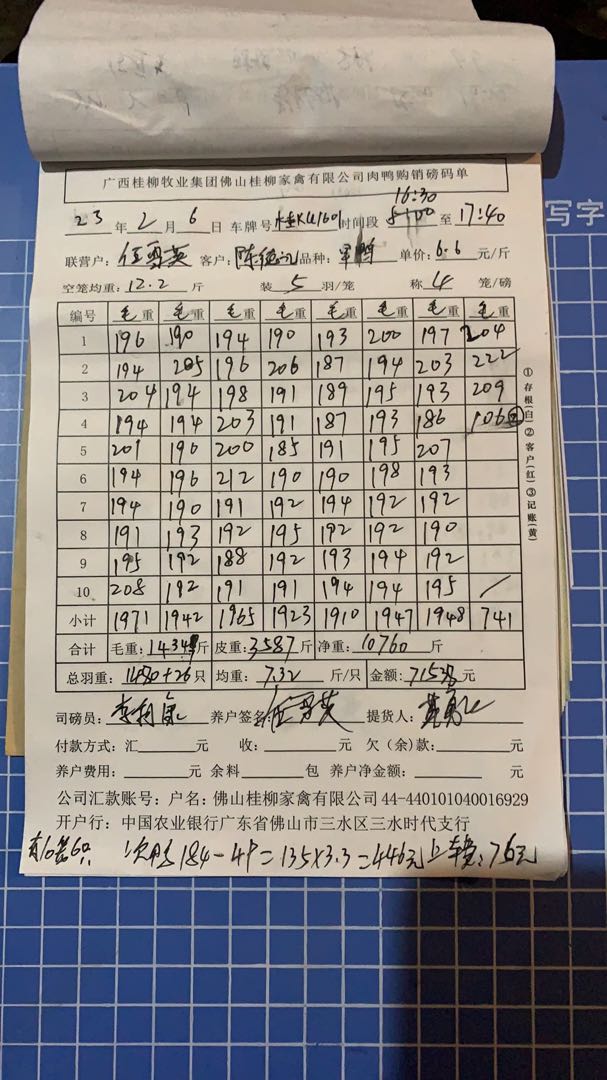 广西桂柳牧业集团佛山桂柳家禽有限公司肉鸭购销磅码单
16:30
23 年 2 月 6 日 车牌号 桂KU1601 时间段 至 17:40
联营户: 伍雪英 客户: 品种: 单价: 6.6 元/斤
空笼均重: 12.2 斤 装 5 羽/笼 称 4 笼/磅
编号 毛重 毛重 毛重 毛重 毛重 毛重 毛重 毛重
1 196 190 194 190 193 200 197 204
2 194 205 196 206 187 194 203 222
3 204 194 198 191 189 195 193 209
4 194 194 203 191 187 193 186 106
5 201 190 200 185 191 195 207
6 194 196 212 190 190 198 193
7 194 190 191 192 194 192 192
8 191 193 192 195 192 192 190
9 195 192 188 192 193 194 192
10 208 192 191 191 194 194 195
小计 1971 1942 1965 1923 1910 1947 1948 741
合计 毛重: 斤 皮重: 3587 斤 净重: 10760 斤
总羽重: 只 均重: 7.32 斤/只 金额: 元
司磅员: 养户签名: 伍雪英 提货人:
付款方式: 汇 元 收: 元 欠(余)款: 元
养户费用: 元 余料 包 养户净金额: 元
公司汇款账号: 户名: 佛山桂柳家禽有限公司 44-440101040016929
开户行: 中国农业银行广东省佛山市三水区三水时代支行
184-49=135×3.3=446元 76元
①存根(白)②客户(红)③记账(黄)
写字